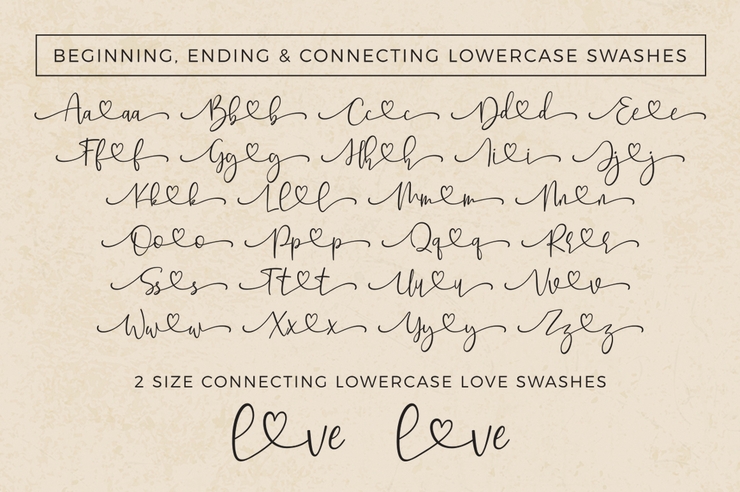 BEGINNING, ENDING & CONNECTING LOWERCASE SWASHES
Aa♡aa Bb♡b Cc♡c Dd♡d Ee♡e
Ff♡f Gg♡g Hh♡h Ii♡i Jj♡j
Kk♡k Ll♡l Mm♡m Nn♡n
Oo♡o Pp♡p Qq♡q Rr♡r
Ss♡s Tt♡t Uu♡u Vv♡v
Ww♡w Xx♡x Yy♡y Zz♡z
2 SIZE CONNECTING LOWERCASE LOVE SWASHES
l♡ve l♡ve